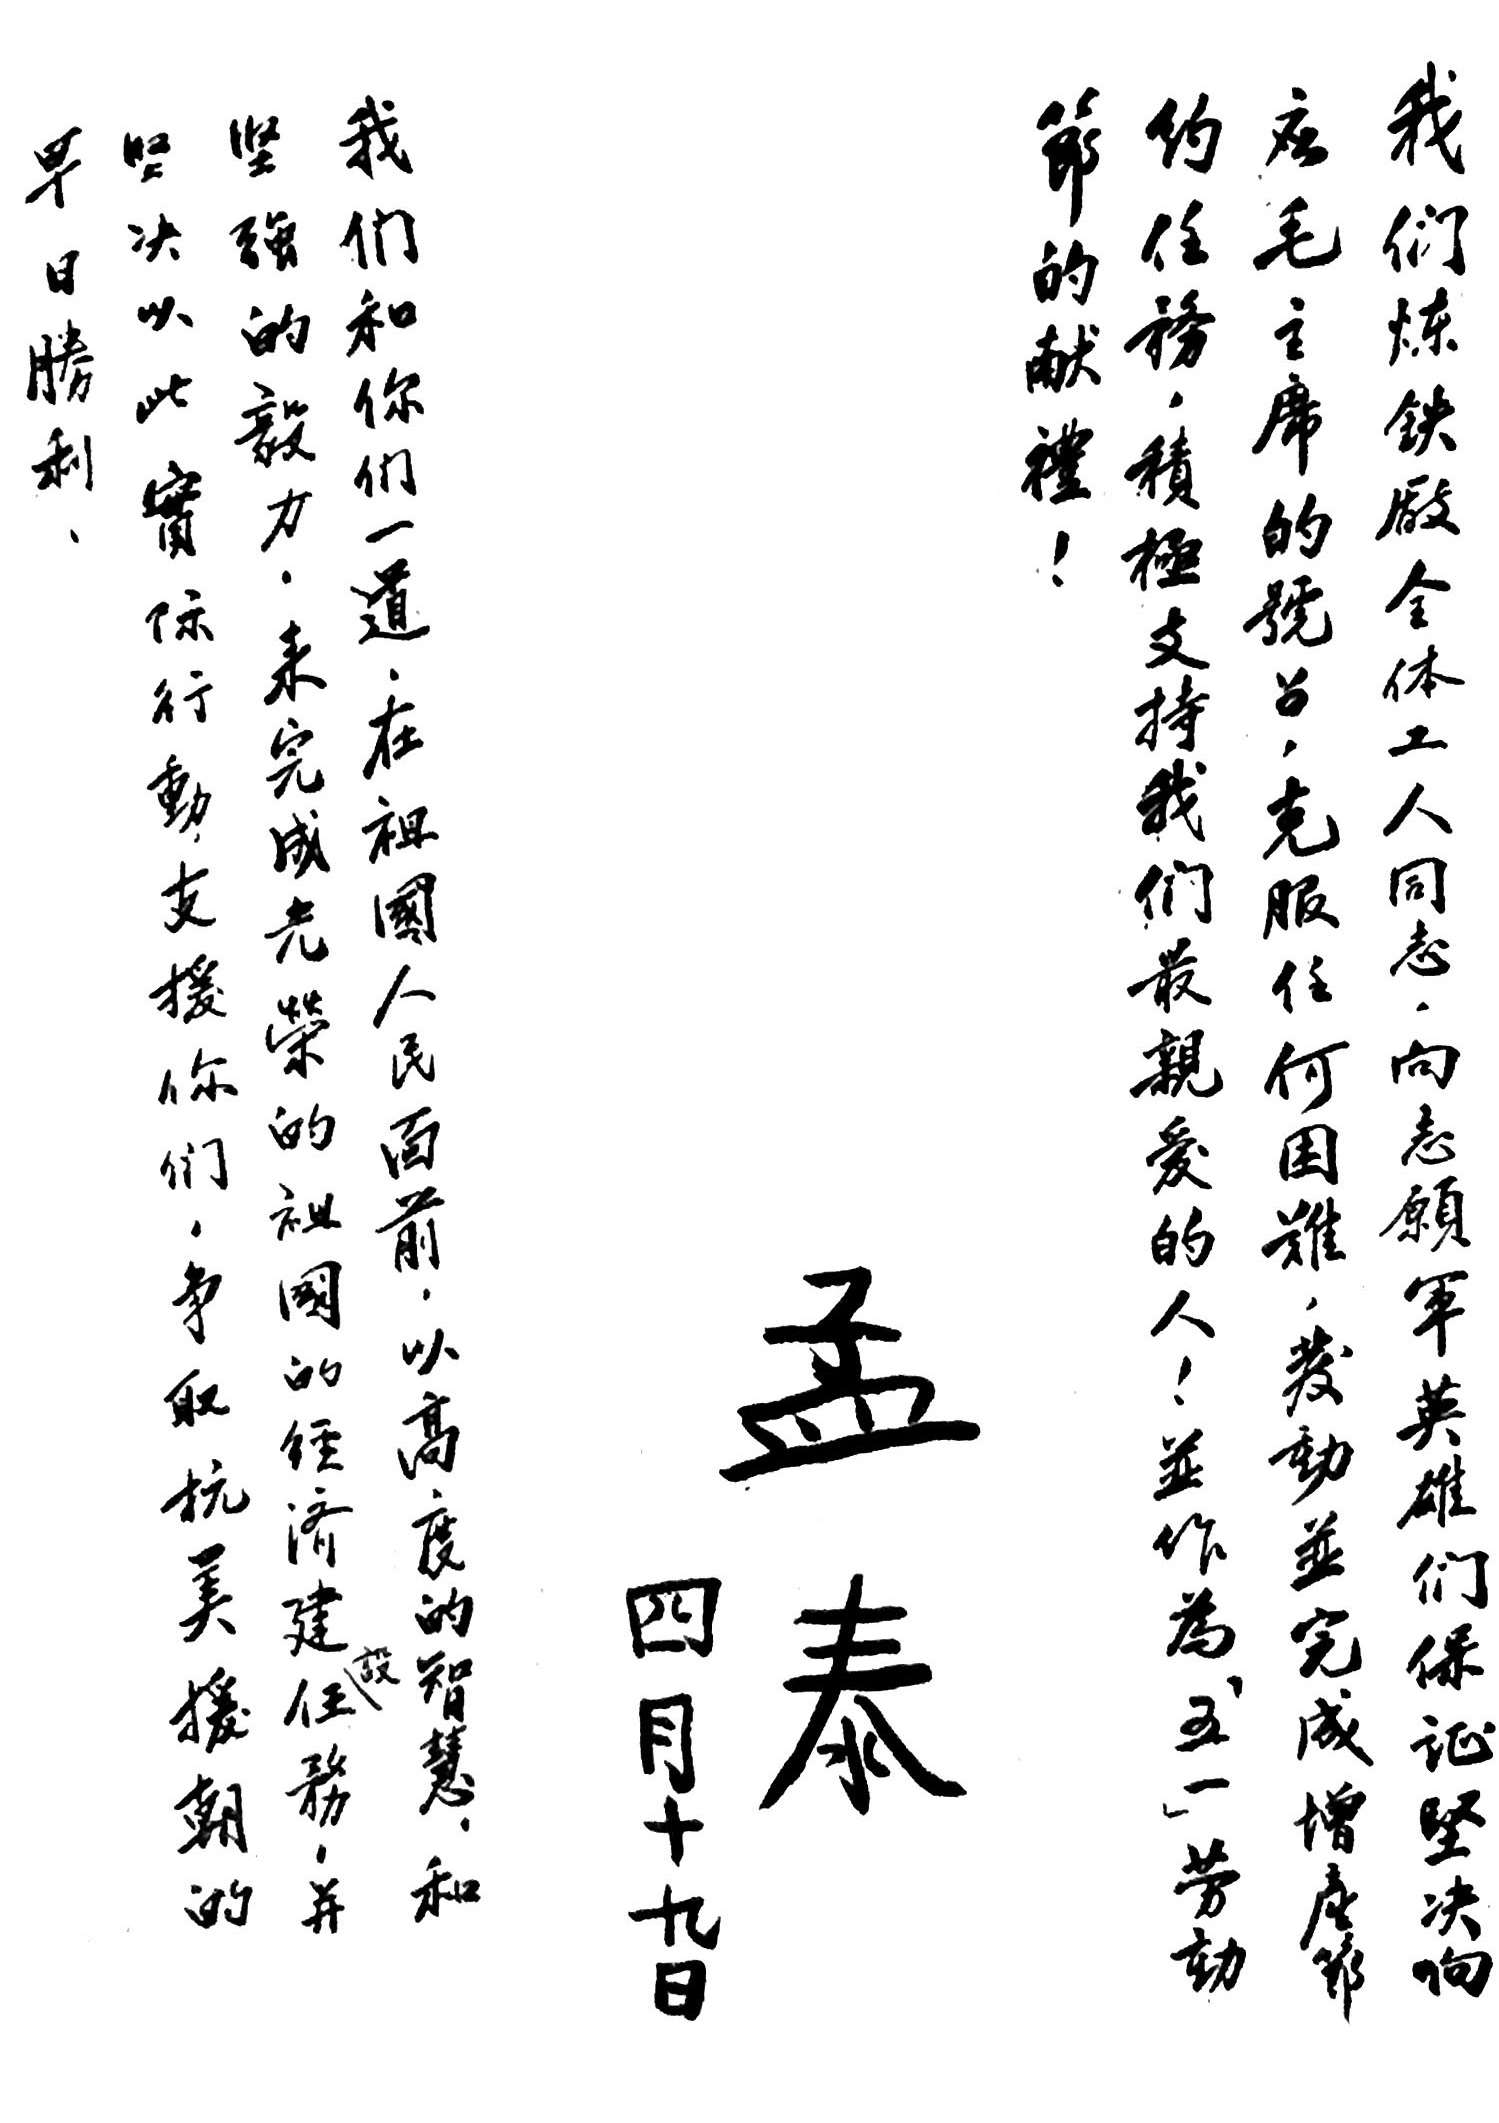 我们炼鉄厰全体工人同志，向志願军英雄们保证坚决响
应毛主席的號召，克服任何困难，发動並完成增産節
约任務，積極支持我们最親爱的人！並作為「五一」劳动
節的献禮！
孟泰
四月十九日
我们和你们一道，在祖國人民面前，以高度的智慧，和
坚强的毅力，来完成光荣的祖國的经济建設任務，并
坚决以此實际行動，支援你们，争取抗美援朝的
早日勝利、